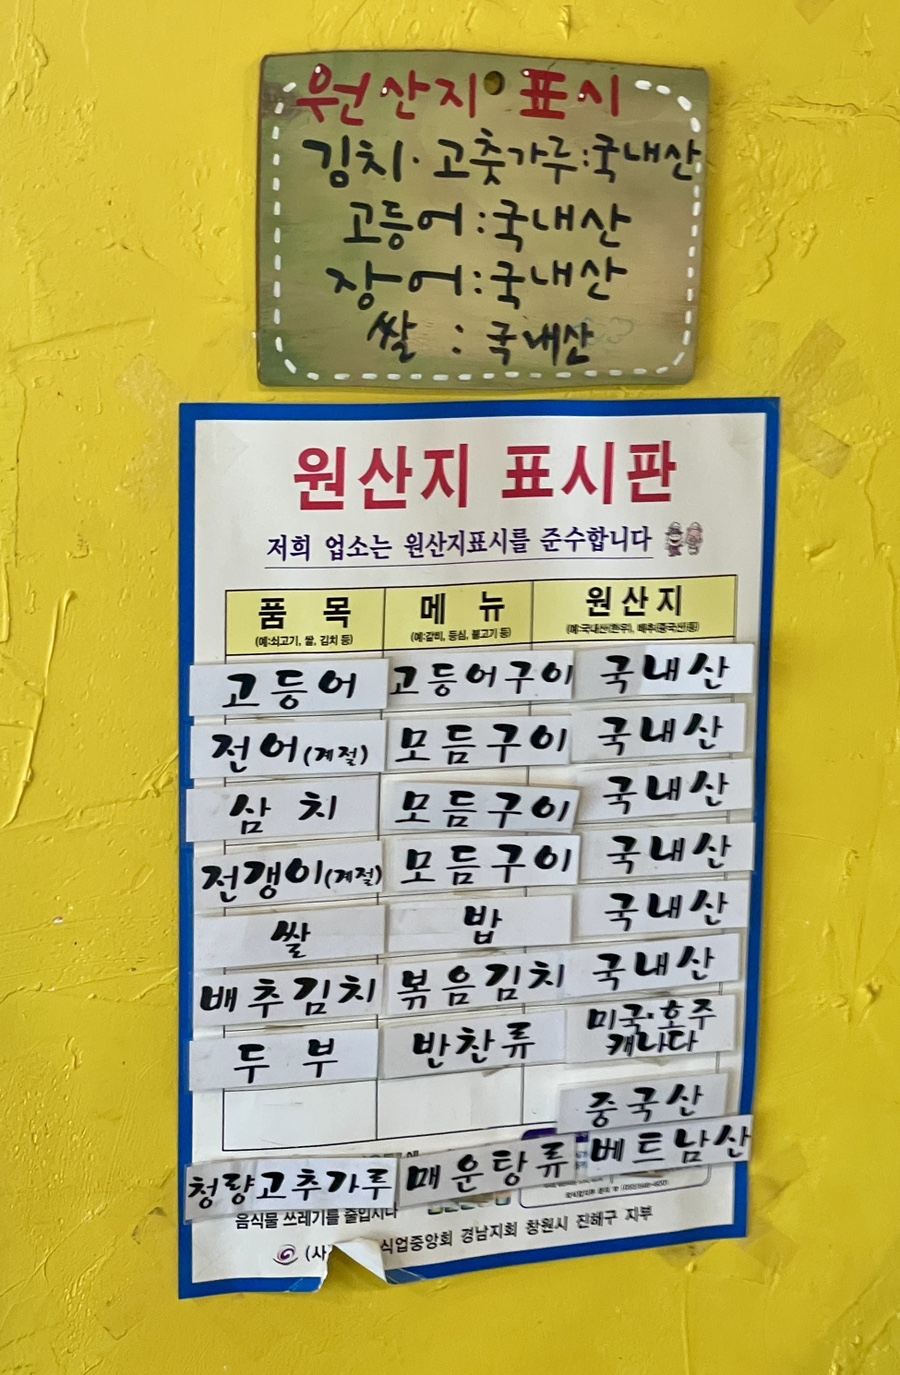 원산지 표시
김치·고춧가루:국내산
고등어:국내산
장어:국내산
쌀 : 국내산
원산지 표시판
저희 업소는 원산지표시를 준수합니다
품 목 메 뉴 원 산 지
(예:쇠고기, 쌀, 김치 등) (예:갈비, 등심, 불고기 등) (예:국내산(한우), 배추(중국산)등)
고등어 고등어구이 국내산
전어(계절) 모듬구이 국내산
삼 치 모듬구이 국내산
전갱이(계절) 모듬구이 국내산
쌀 밥 국내산
배추김치 볶음김치 국내산
두 부 반찬류 미국·호주
캐나다
중국산
청량고추가루 매운탕류 베트남산
음식물 쓰레기를 줄입시다
(사 식업중앙회 경남지회 창원시 진해구 지부